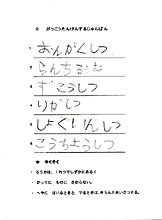 ☆ がっこうたんけんするじゅんばん
1 おんがくしつ
2 らんちるうむ
3 ずこうしつ
4 りかしつ
5 しょくいんしつ
6 こうちょうしつ
★ やくそく
ろうかは、1れつでしずかにあるく
かってに ものに さわらない。
へやに はいるときと でるときは、きちんとあいさつする。